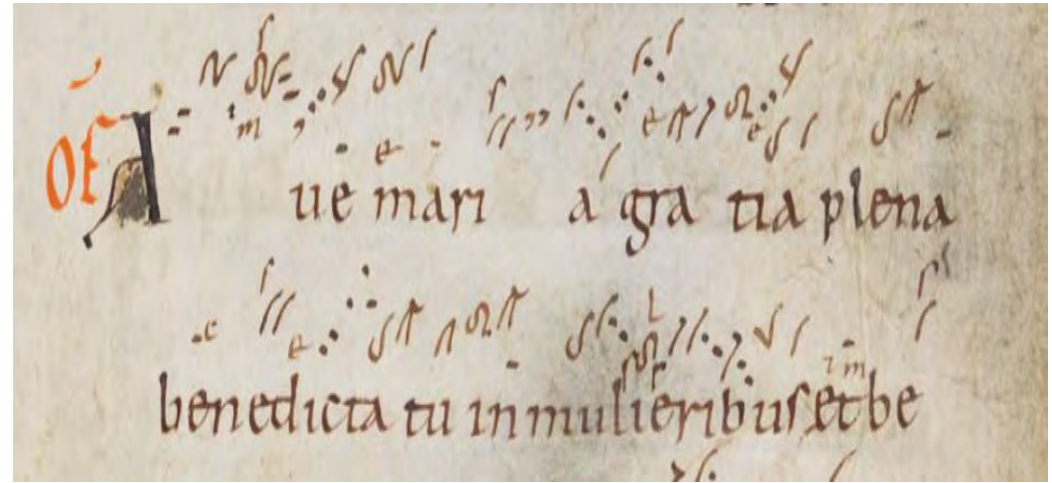 OF Aue maria gratia plena
benedicta tu inmulieribus et be